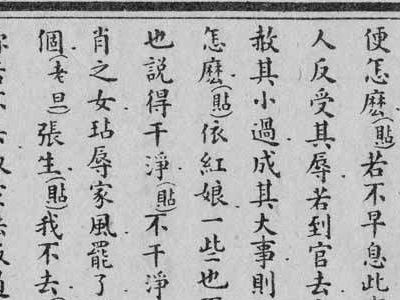 便怎麽(貼)若不早息此
人反受其辱若到官去
赦其小過成其大事則
怎麽(貼)依紅娘一些也
也說得干淨(貼)不干淨
肖之女玷辱家風罷了
個(老旦)張生(貼)我不去